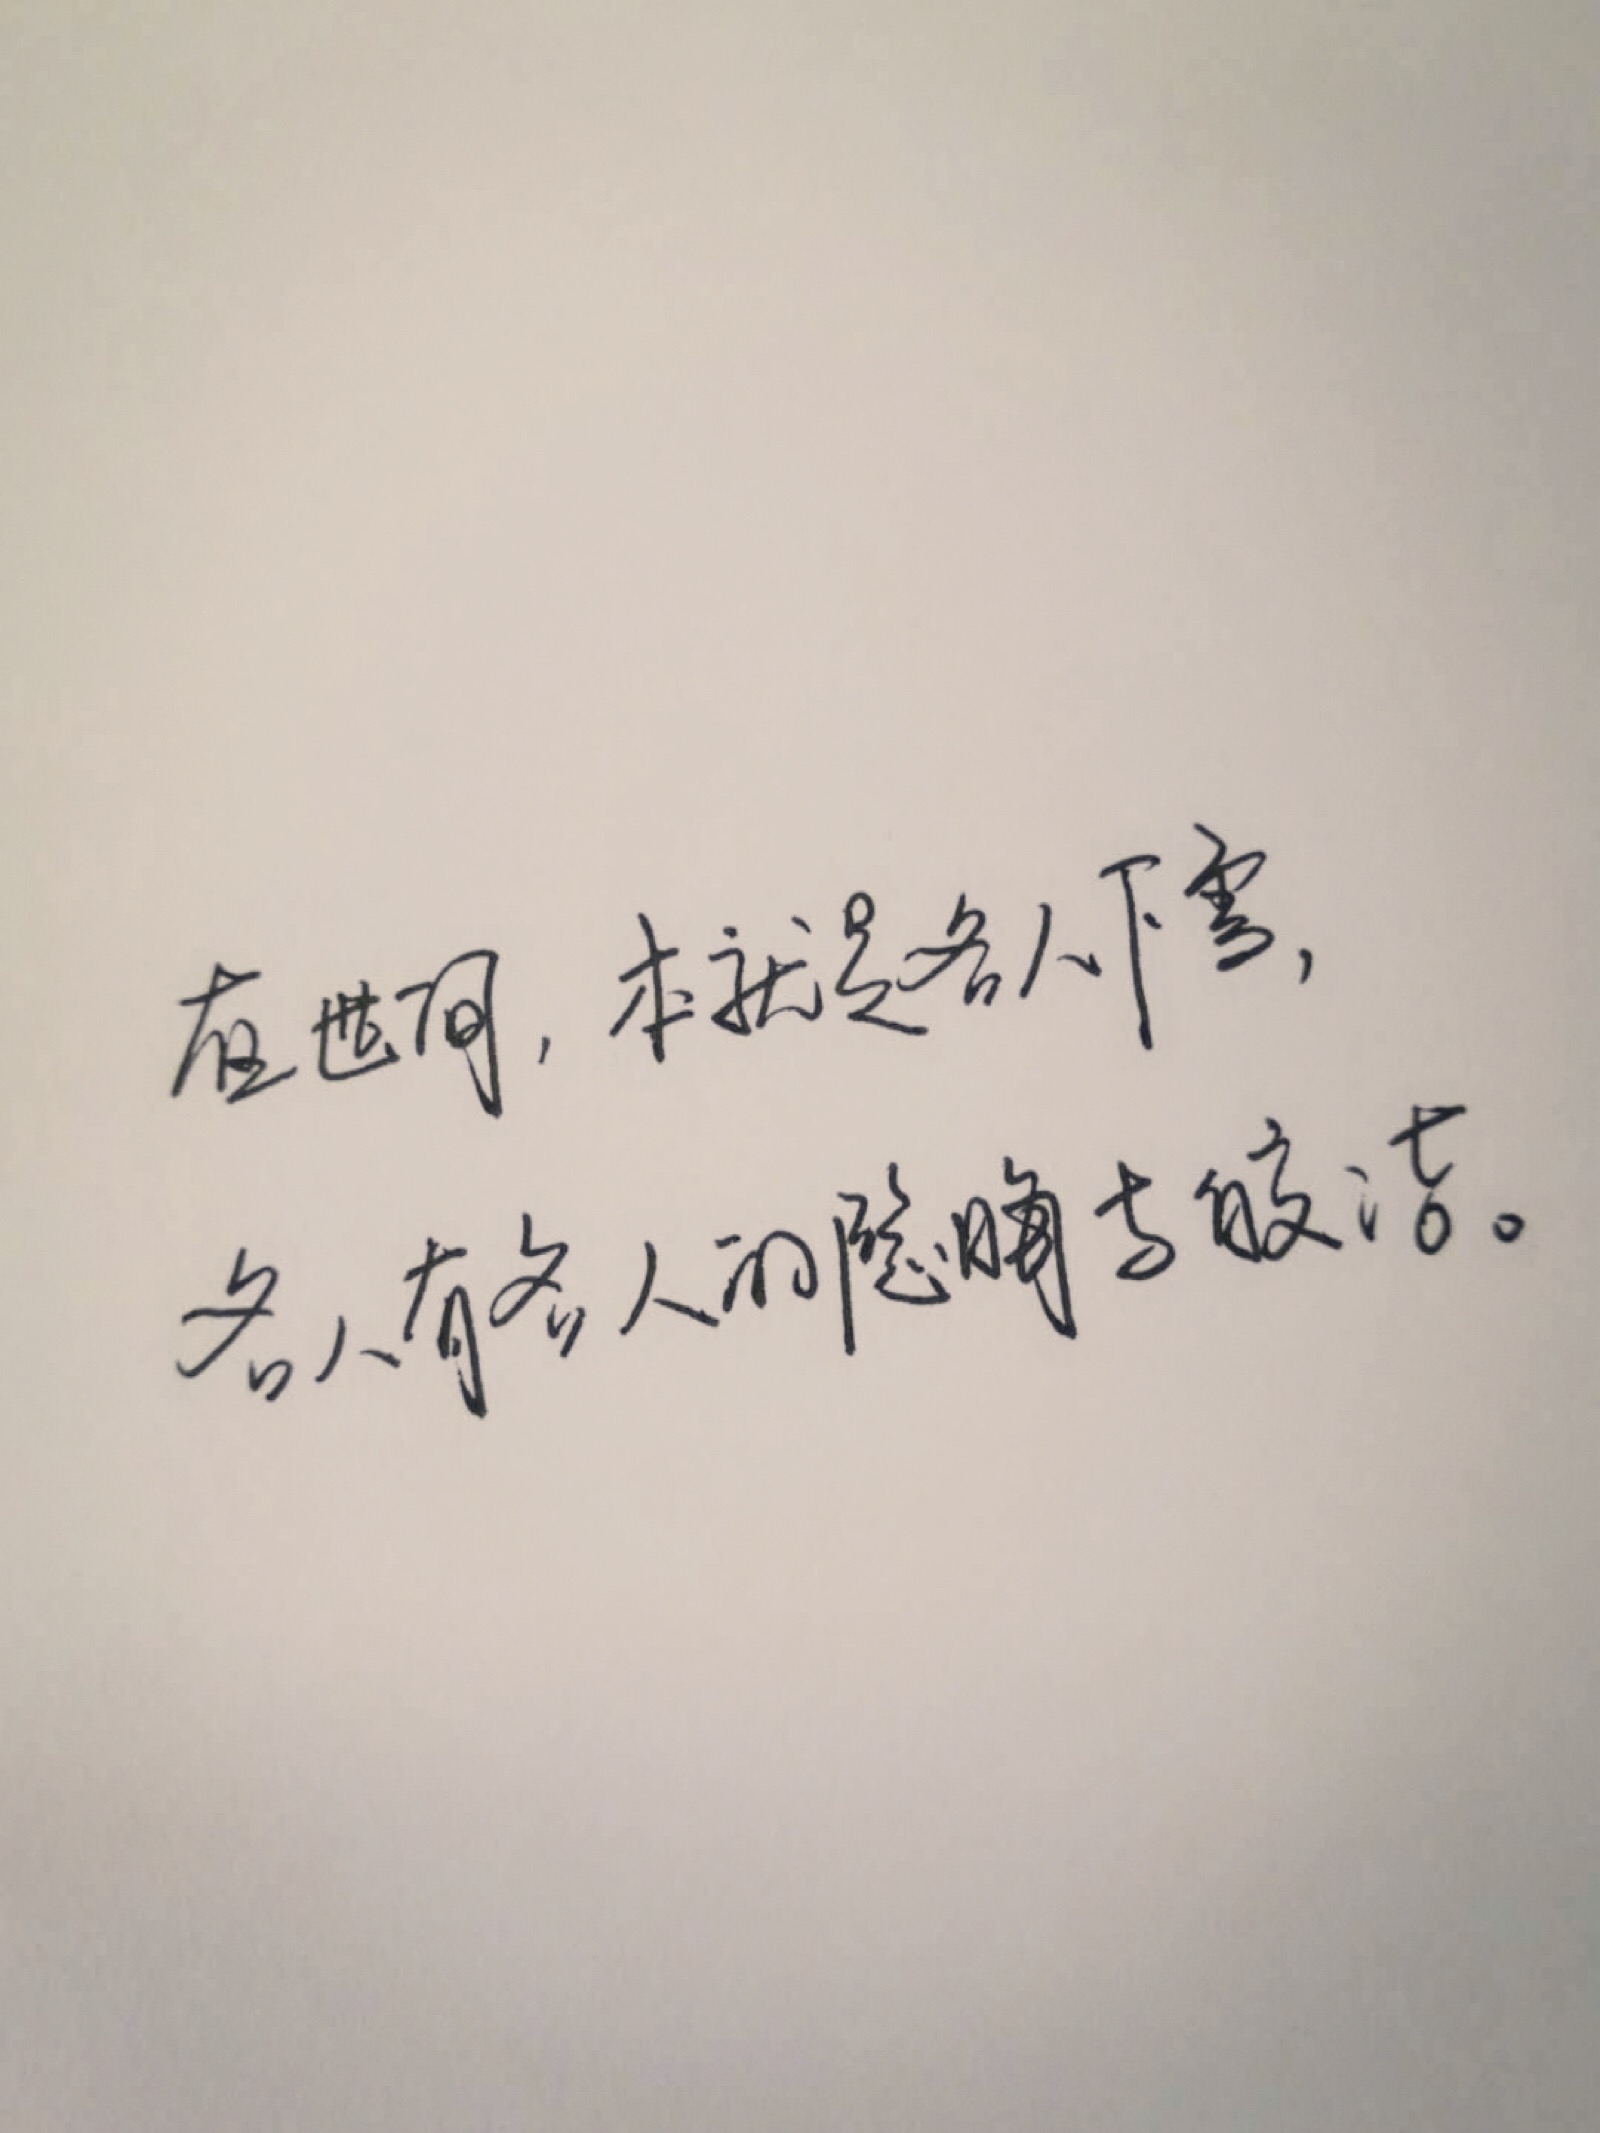 在世间，本就是各人下雪，
各人有各人的隐晦与皎洁。